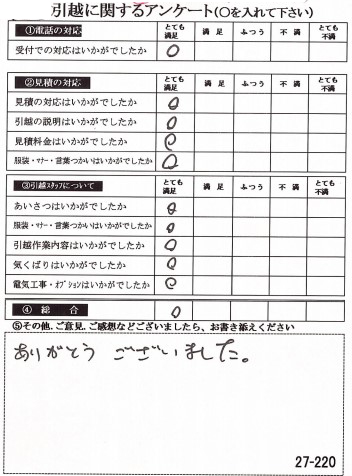 引越に関するアンケート(○を入れて下さい)
①電話の対応 とても満足 満足 ふつう 不満 とても不満
受付での対応はいかがでしたか ○
②見積の対応 とても満足 満足 ふつう 不満 とても不満
見積の対応はいかがでしたか ○
引越の説明はいかがでしたか ○
見積料金はいかがでしたか ○
服装・マナー・言葉つかいはいかがでしたか ○
③引越スタッフについて とても満足 満足 ふつう 不満 とても不満
あいさつはいかがでしたか ○
服装・マナー・言葉つかいはいかがでしたか ○
引越作業内容はいかがでしたか ○
気くばりはいかがでしたか ○
電気工事・オプションはいかがでしたか ○
④ 総合 ○
⑤その他、ご意見、ご感想などございましたら、お書き添えください
ありがとう ございました。
27-220